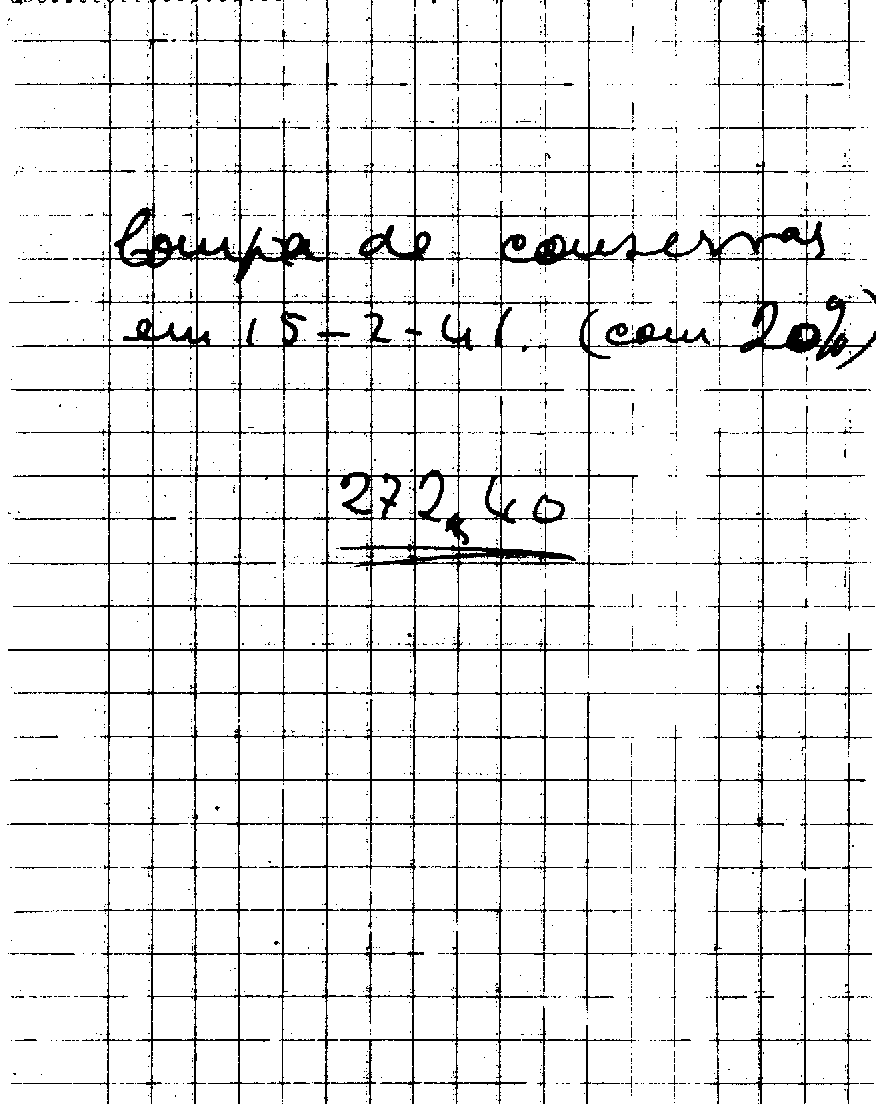 Compra de conservas
em 15-2-41. (com 20%)
272$40